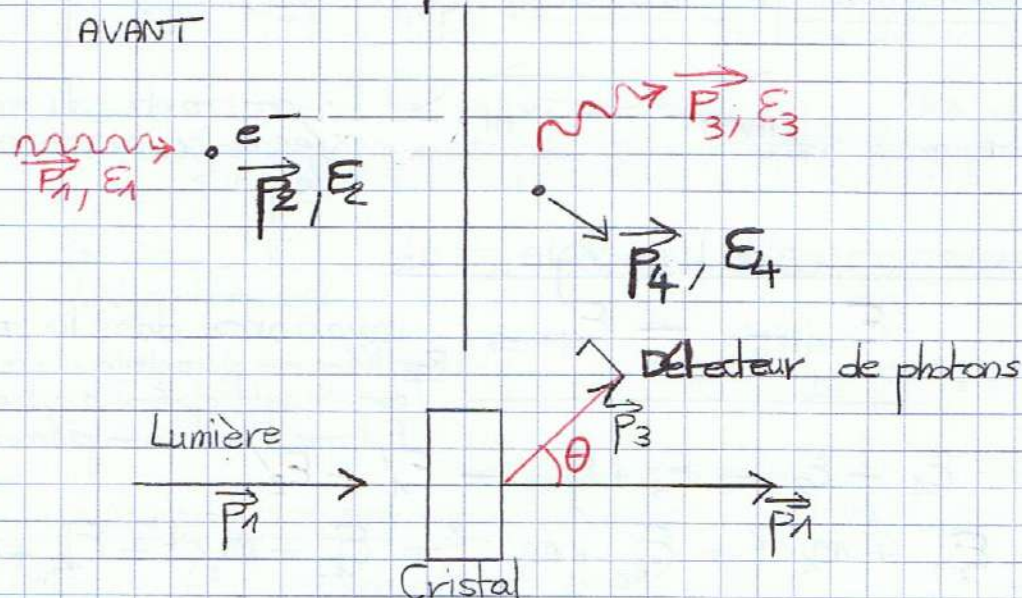 AVANT
e⁻
P⃗1, ε1
P⃗2, ε2
P⃗3, ε3
P⃗4, ε4
Détecteur de photons
P⃗3
Lumière
θ
P⃗1
P⃗1
Cristal